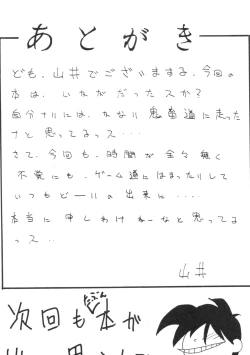 あとがき
ども、山井でございまする、今回の
本は、いかがだったスか？
自分ナリには、かなり愚童道に走った
ナと思ってるっス…
さて、今回も、時間が全々無く
不覚にも、ゲーム道にはまったりして
いつもどーりの出来に‥‥
本当に申しわけねーなと思ってる
っス‥
山井
次回もたぶん本が